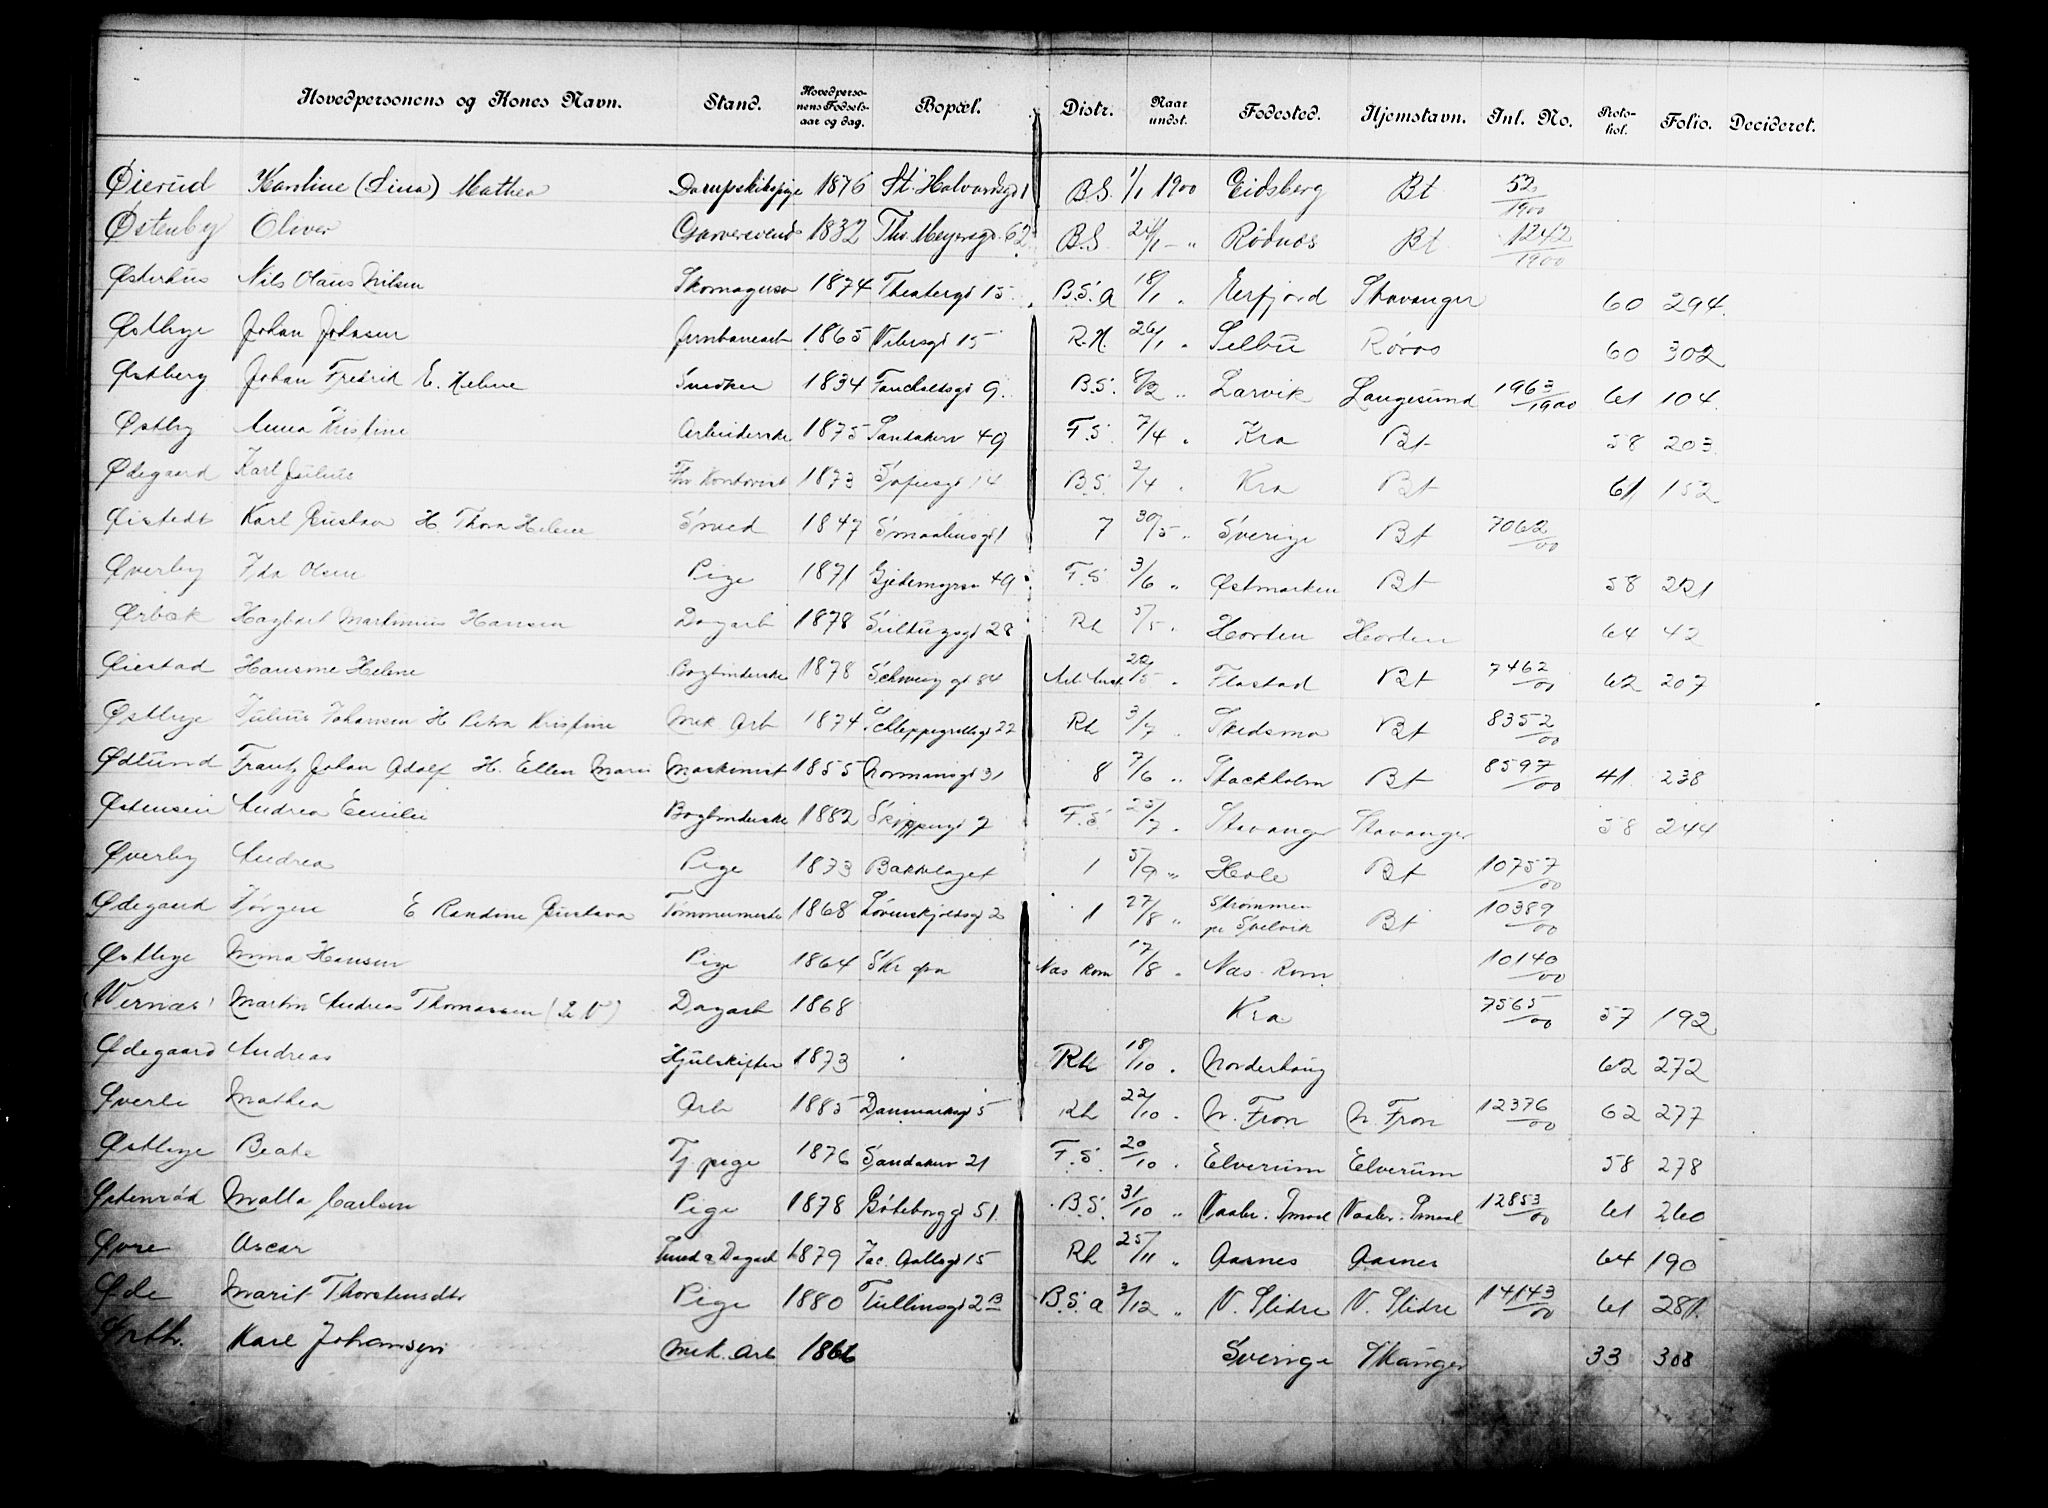 Hovedpersonens og Kones Navn. Stand. Hovedpersonens Fødselsaar og dag. Bopæl. Distr. Naar undst. Fødested. Hjemstavn. Inl. No. Protokol. Folio. Decideret.
Øierud Karoline (Lina) Mathea 1876 St. Halvardsgd 1 B.S. 1/1 1900 Eidsberg Bt 52/1900
Østenby Oliver Garversvend 1832 Thv. Meyersgd. 62 B.S. 24/1 - " Rødnæs Bt 1242/1900
Østerhus Nils Olaus Nilsen Skomagersv 1874 Theatergd 15 B.S. a 18/1 " Jerfjord Stavanger 60 294
Østbye Johan Johnsen Jernbanearb 1865 Vibesgd 15 R.H. 26/1 " Selbu Røros 60 302
Østberg Johan Fredrik E. Helene Snedker 1834 Fauchaldsgd 9 B.S. 8/2 " Larvik Langesund 1963/1900 61 104
Østby Anna Kristine Arbeiderske 1875 Sandakerv 49 F.S. 7/4 " Kra Bt 58 203
Ødegaard Karl Julius 1873 Sofiesgd 14 B.S. 2/4 " Kra Bt 61 152
Øistedt Karl Gustav H. Thora Helene Smed 1847 Smaalensgd 1 7 30/5 " Sverige Bt 7062/00
Øverby Ida Olsen Pige 1871 Gjetemyrsv 49 F.S. 3/6 " Østmarken Bt 58 221
Ørbæk Hagbart Martinius Hansen Dagarb 1878 28 Rh 5/5 " Horten Horten 64 42
Øiestad Hansine Helene Bogbinderske 1878 Schweigd 84 20/5 " Flostad Bt 7462/00 62 207
Østbye Julius Johansen H Petra Kristine Mek Arb 1874 Schleppegrellsgd 22 Rh 3/7 " Skedsmo Bt 8352/00
Ødlund Frantz Johan Adolf H. Ellen Marie Maskinist 1855 Normansgd 31 8 7/6 " Stockholm Bt 8597/00 41 238
Østensen Andrea Emilie Bogbinderske 1882 Skippergd 7 F.S. 25/7 " Stavanger Stavanger 58 244
Øverby Andrea Pige 1873 Bakkelaget 1 5/9 " Hole Bt 10757/00
Ødegaard Jørgen E Randine Gustava Tømmermester 1868 Løvenskjoldsgd 2 1 27/8 " Strømmen pr Svelvik Bt 10389/00
Østbye Mina Hansen Pige 1864 Skr. fra Næs Rom 17/8 " Næs Rom. 10140/00
(Wernæs) Martin Andreas Thomassen Dagarb 1868 Kra 7565/00 57 192
Ødegaard Andreas Hjulskifter 1873 Rh 18/10 " Norderhaug 62 272
Øverli Mathea Arb 1885 Danmarksgd 5 Rh 22/10 " N. Fron N. Fron 12376/00 62 277
Østbye Beate Tj pige 1876 Sandakerv 21 F.S. 20/10 " Elverum Elverum 58 278
Østenrød Malla Carlsen Pige 1878 Göteborggd 51 B.S. 31/10 " Vaaler. Smaal Vaaler. Smaal 12853/00 61 260
Øvre Oscar Smed & Dagarb 1879 Jac. Aallsgd 15 Rh 25/11 " Aasnes Aasnes 64 190
Øde Marit Thorstensdtr Pige 1880 Tullinsgd 2 B B.S. a 3/12 " V. Slidre V. Slidre 14143/00 61 281
Karl Johansen Mek. Arb 1866 Sverige 33 308